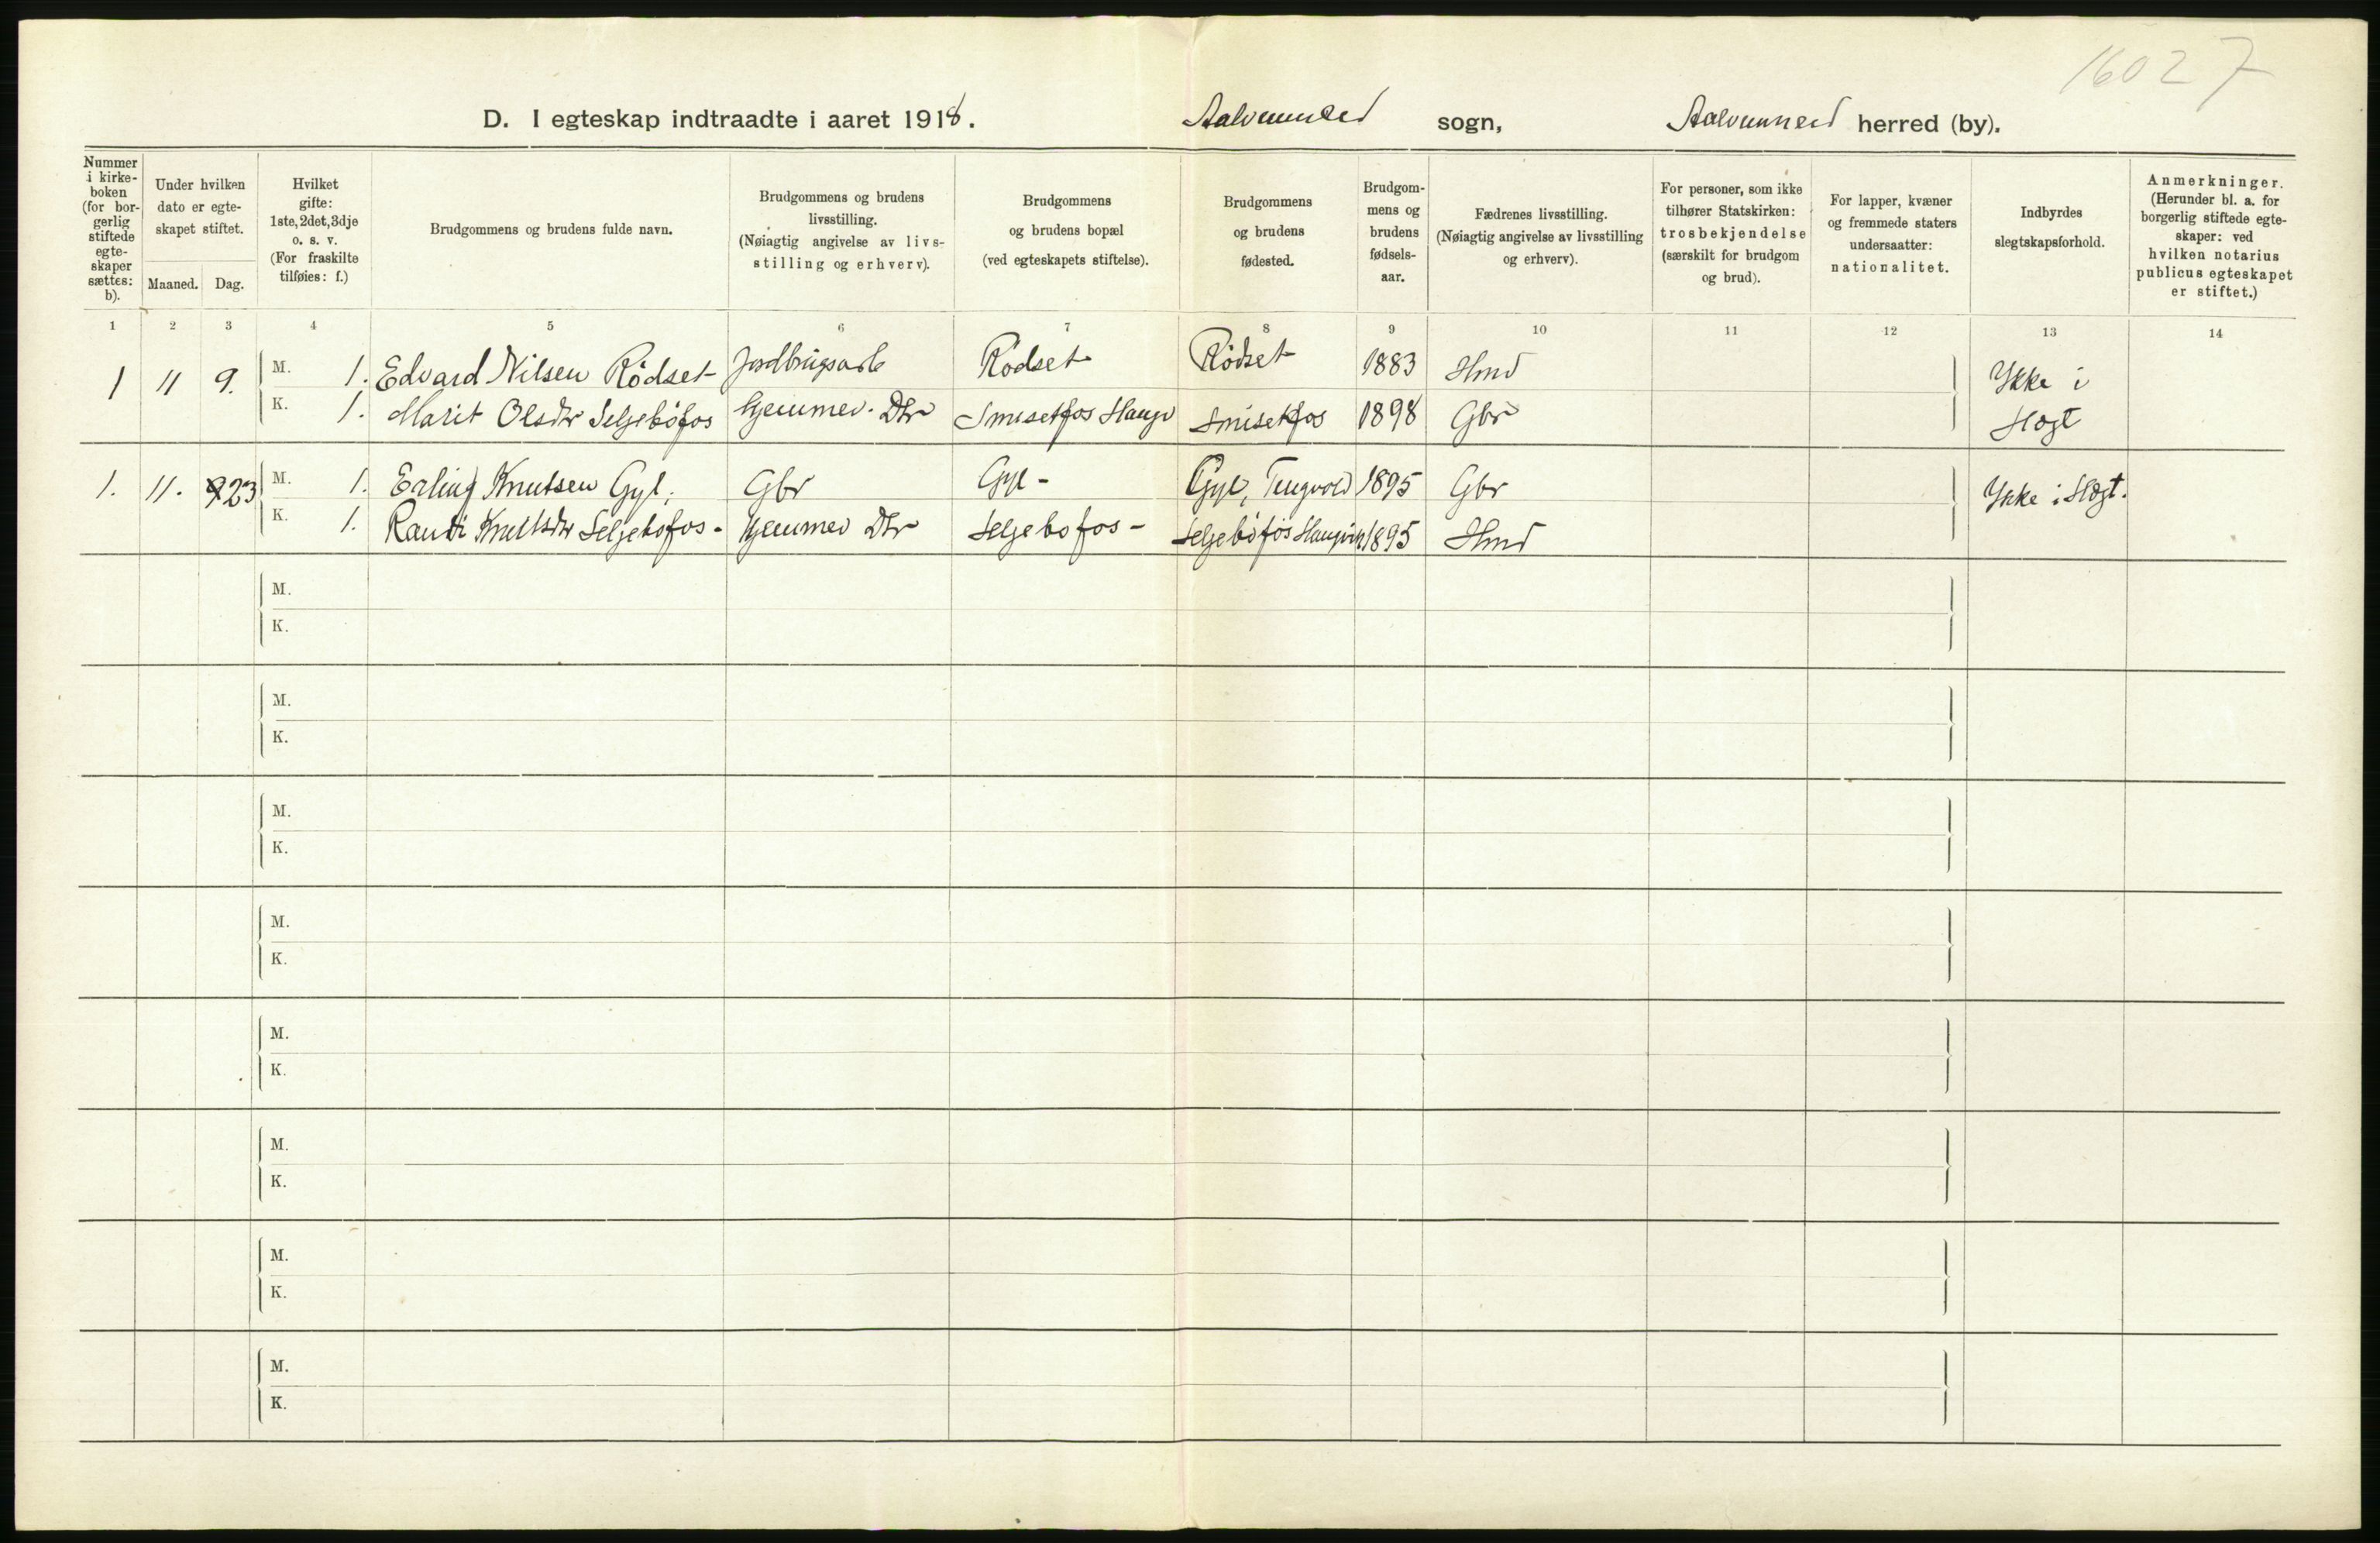 16027
D. I egteskap indtraadte i aaret 1918.
Aalvunneid sogn, Aalvunneid herred (by).
Nummer i kirkeboken (for borgerlig stiftede egteskaper sættes: b).
Under hvilken dato er egteskapet stiftet.
Maaned. Dag.
Hvilket gifte: 1ste, 2det, 3dje o. s. v. (For fraskilte tilføies: f.)
Brudgommens og brudens fulde navn.
Brudgommens og brudens livsstilling. (Nøiagtig angivelse av livsstilling og erhverv).
Brudgommens og brudens bopæl (ved egteskapets stiftelse).
Brudgommens og brudens fødested.
Brudgommens og brudens fødselsaar.
Fædrenes livsstilling. (Nøiagtig angivelse av livsstilling og erhverv).
For personer, som ikke tilhører Statskirken: trosbekjendelse (særskilt for brudgom og brud).
For lapper, kvæner og fremmede staters undersaatter: nationalitet.
Indbyrdes slegtskapsforhold.
Anmerkninger. (Herunder bl. a. for borgerlig stiftede egteskaper: ved hvilken notarius publicus egteskapet er stiftet.)
1 2 3 4 5 6 7 8 9 10 11 12 13 14
1 11 9. M. 1. Edvard Nilsen Rödset Jordbrugsarb Rödset Rödset 1883 Hmd Ikke i
K. 1. Marit Olsdtr Seljeböfos hjemmev. Dtr Smisetfos Smisetfos 1898 Gbr Slegt
1. 11. 23 M. 1. Erling Knutsen Gyl. Gbr Gyl - Gyl, Tingvold 1895 Gbr Ikke i Slegt.
K. 1. Randi Knutsdtr Seljebofos - hjemmev Dtr Seljebofos - Seljeböfos 1895 Hmd
M.
K.
M.
K.
M.
K.
M.
K.
M.
K.
M.
K.
M.
K.
M.
K.